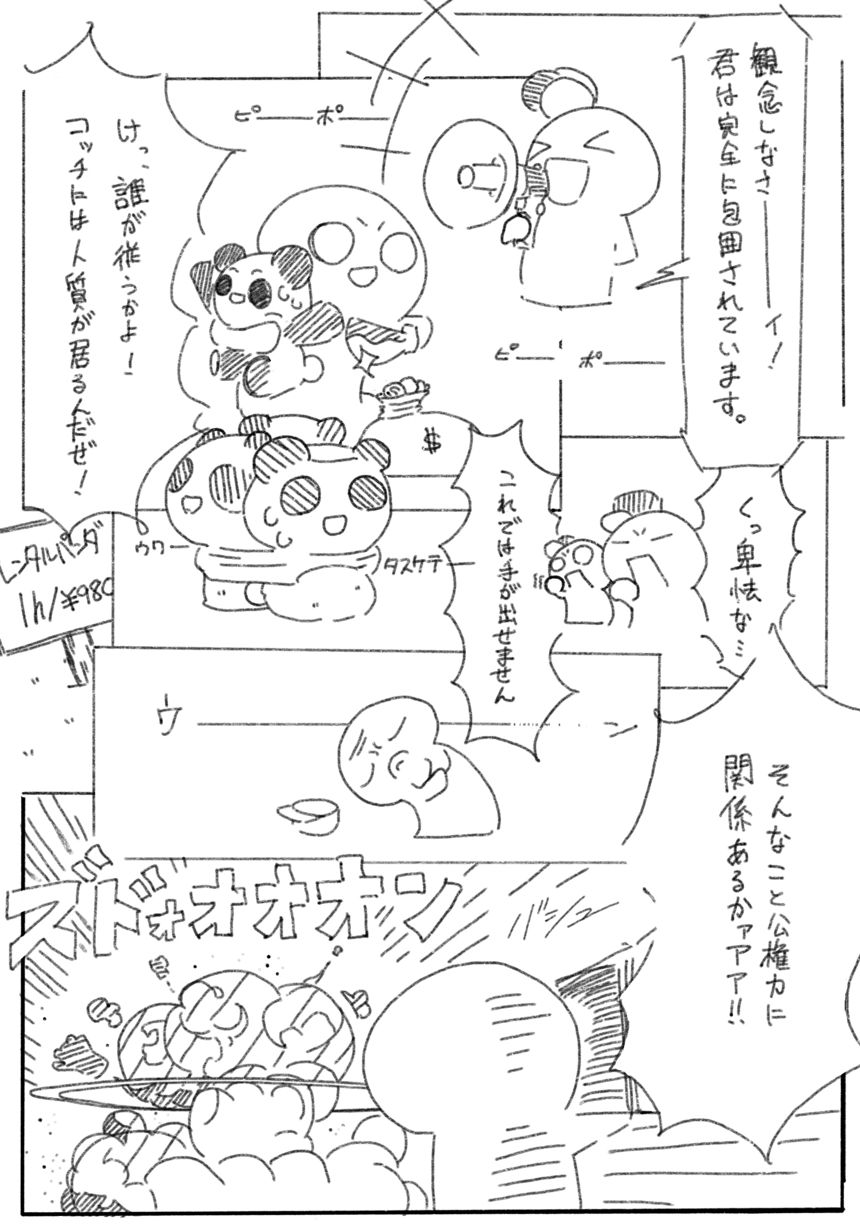 観念しなさーーーイ!
君は完全に包囲されています。
ピーーポーー
けっ、誰が従うかよー!
コッチには人質が居るんだぜ!
ピーー ポーー
$
くっ卑怯な…
これでは手が出せません
ウワー
タスケテー
レンタルパンダ
1h/¥980
ウーーーーーン
そんなこと公権力に
関係あるかァアア!!
ズドォォオオオン
バシュー